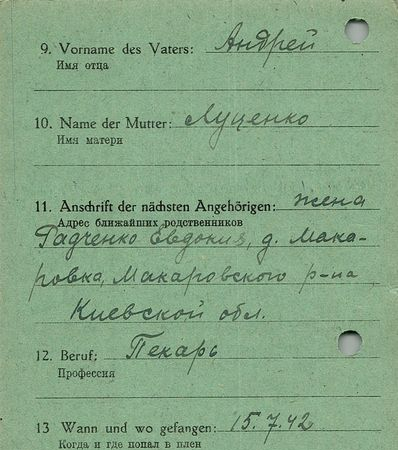 9. Vorname des Vaters: Андрей
Имя отца
10. Name der Mutter: Луценко
Имя матери
11. Anschrift der nächsten Angehörigen: жена
Адрес ближайших родственников
Радченко Евдокия, д. Мака-
ровка, Макаровского р-на
Киевской обл.
12. Beruf: Пекарь
Профессия
13 Wann und wo gefangen: 15.7.42
Когда и где попал в плен